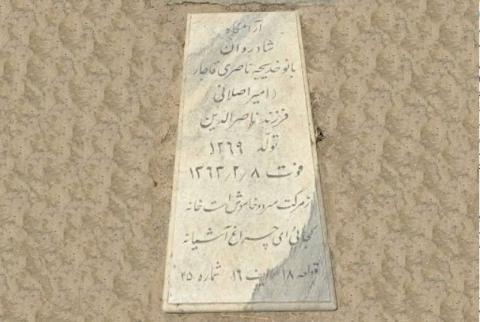 آرامگاه
شادروان
بانو خدیجه ناصری قاجار
(امیراصلانی
فرزند ناصرالدین
تولد ۱۲۶۹
فوت ۱۳۶۳/۲/۸
از مرگت سرد و خاموش است خانه
کجائی ای چراغ آشیانه
قطعه ۱۸ ردیف ۱۶ شماره ۲۵